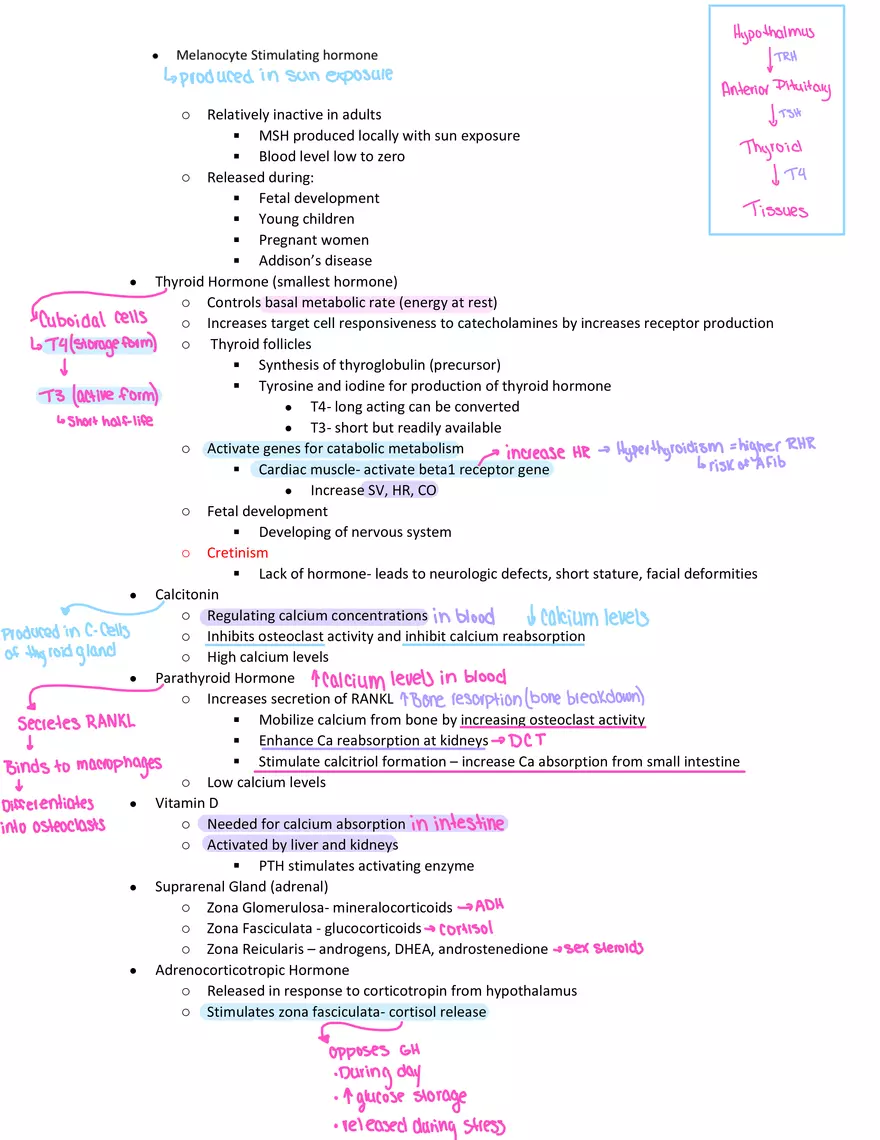 • Melanocyte Stimulating hormone
↳produced in sun exposure
○ Relatively inactive in adults
▪ MSH produced locally with sun exposure
▪ Blood level low to zero
○ Released during:
▪ Fetal development
▪ Young children
▪ Pregnant women
▪ Addison's disease
Hypothalmus
↓TRH
Anterior Pituitary
↓TSH
Thyroid
↓T4
Tissues
• Thyroid Hormone (smallest hormone)
○ Controls basal metabolic rate (energy at rest)
○ Increases target cell responsiveness to catecholamines by increases receptor production
○ Thyroid follicles
▪ Synthesis of thyroglobulin (precursor)
▪ Tyrosine and iodine for production of thyroid hormone
• T4- long acting can be converted
• T3- short but readily available
Cuboidal cells
↳T4(storage form)
↓
T3 (active form)
↳short half-life
○ Activate genes for catabolic metabolism
▪ Cardiac muscle- activate beta1 receptor gene
increase HR → Hyperthyroidism = higher RHR
↳risk of AFib
• Increase SV, HR, CO
○ Fetal development
▪ Developing of nervous system
○ Cretinism
▪ Lack of hormone- leads to neurologic defects, short stature, facial deformities
• Calcitonin
Produced in C-Cells
of thyroid gland
○ Regulating calcium concentrations in blood ↓calcium levels
○ Inhibits osteoclast activity and inhibit calcium reabsorption
○ High calcium levels
• Parathyroid Hormone ↑calcium levels in blood
○ Increases secretion of RANKL ↑Bone resorption(bone breakdown)
▪ Mobilize calcium from bone by increasing osteoclast activity
▪ Enhance Ca reabsorption at kidneys→DCT
▪ Stimulate calcitriol formation – increase Ca absorption from small intestine
○ Low calcium levels
Secretes RANKL
↓
Binds to macrophages
↓
Differentiates
into osteoclasts
• Vitamin D
○ Needed for calcium absorption in intestine
○ Activated by liver and kidneys
▪ PTH stimulates activating enzyme
• Suprarenal Gland (adrenal)
○ Zona Glomerulosa- mineralocorticoids →ADH
○ Zona Fasciculata - glucocorticoids→cortisol
○ Zona Reicularis – androgens, DHEA, androstenedione →sex steroids
• Adrenocorticotropic Hormone
○ Released in response to corticotropin from hypothalamus
○ Stimulates zona fasciculata- cortisol release
opposes GH
•During day
•↑glucose storage
•released during stress